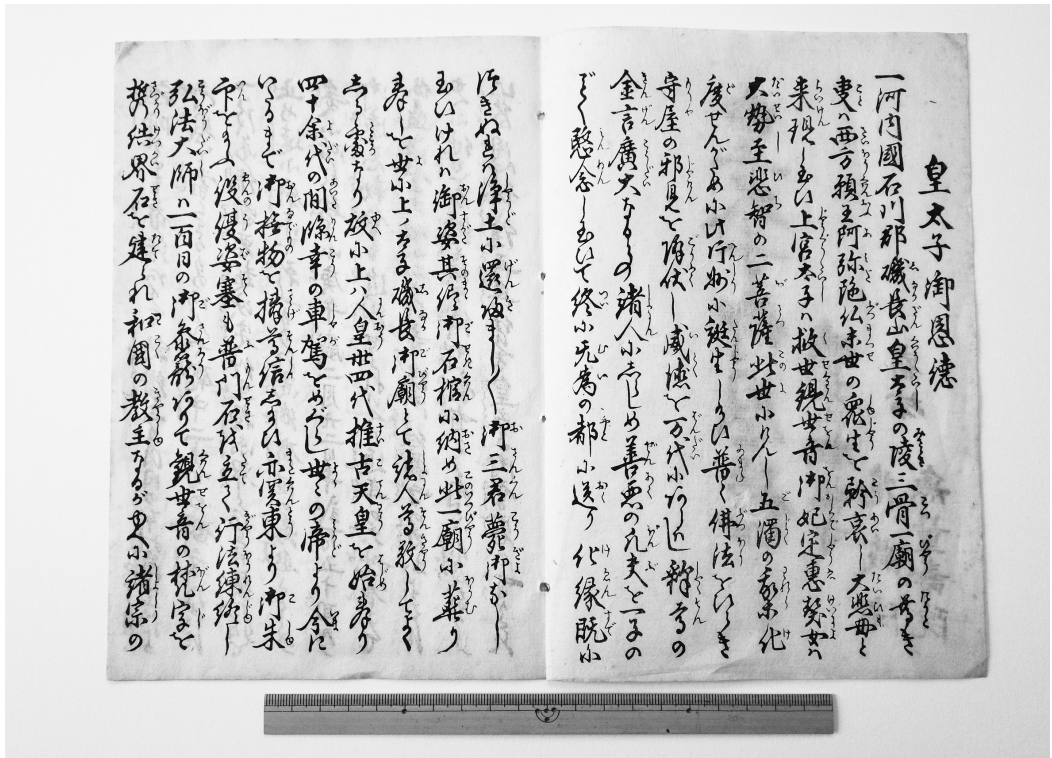 皇太子御恩徳
一河内國石川郡磯長山皇太子の陵三骨一廟の尊き
叓ハ西方願王阿弥陀仏末世の衆生を矜哀し大悲母と
来現し玉ひ上宮太子ハ救世観世音御妃定恵契女ハ
大勢至悲智の二菩薩此世に 五濁の 化
度せんがため小 小誕生しるひ普く佛法をひろき
守屋の邪見を降伏し威徳を万代に 釈尊の
金言廣大なるの諸人小志しめ善悪の凡夫を一子の
ごく愍念し玉ひて終小无為の都小送り 化縁既小
つきぬれハ浄土小還 まし〳〵 御三君薨御なし
玉ひけれハ御姿其侭御石棺小納め此一廟小葬り
奉しを世小上の太子磯長御廟とて諸人尊敬してまる
處なり故小上ハ人皇丗四代推古天皇を始奉り
四十余代の間臨幸の車駕をめぐらし世々の帝より今に
いたるまで御 物を捧尊信志るひ亦関東より御朱
印をるふ役優婆塞も普門石を立てく行法練 し
弘法大師ハ一百日の御参籠 て観世音の梵字を
結界石を建られ和國の教主なるが由へ小諸宗の